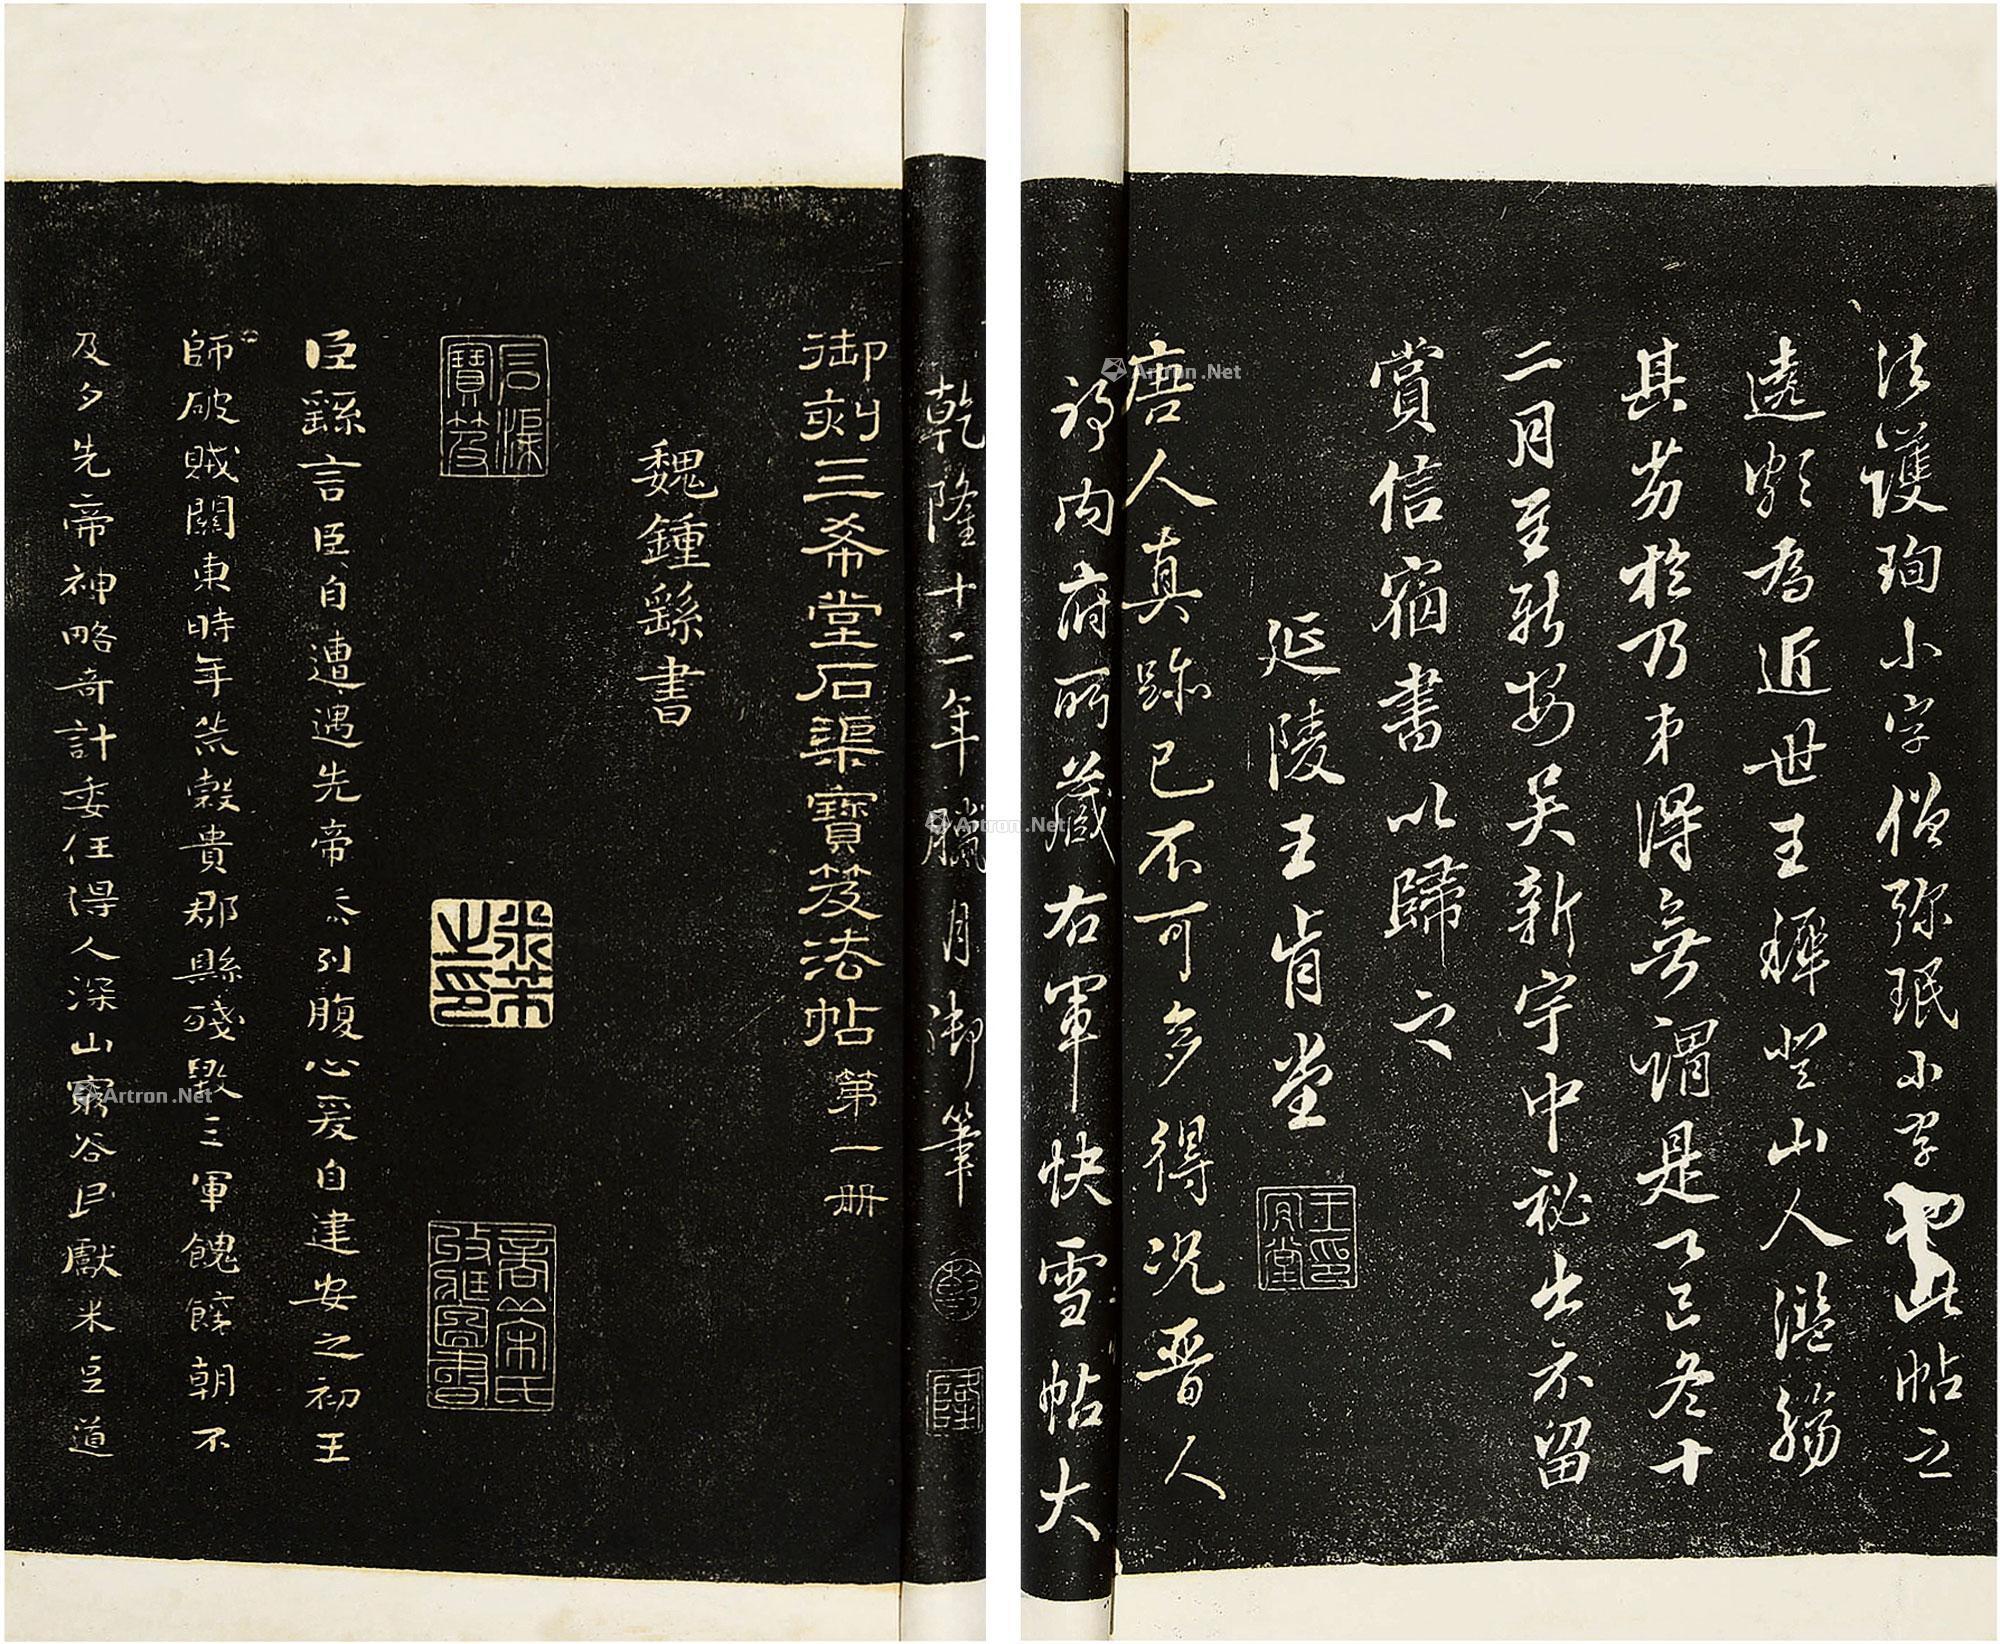 法護珣小字僧弥珉小字此帖之
遠類為近世王穉登山人濫觴
其劣於乃弟得無謂是乙巳冬十
二月至新安吴新宇中祕出示留
賞信宿書以歸之
延陵王肯堂
王肯堂印
唐人真跡已不可多得况晋人
内府所藏右軍快雪帖大
乾隆十二年臘月御筆
隆
御刻三希堂石渠寶笈法帖第一册
魏鍾繇書
石渠寶笈
米芾之印
臣繇言臣自遭遇先帝忝列腹心爰自建安之初王
師破賊關東時年荒穀貴郡縣殘毀三軍餽饟朝不
及夕先帝神略奇計委任得人深山窮谷民獻米豆道
Artron.Net
Artron.Net
Artron.Net